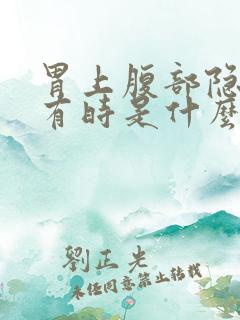 胃上腹部隐
有时是什么
劉正光
未经同意禁止转载